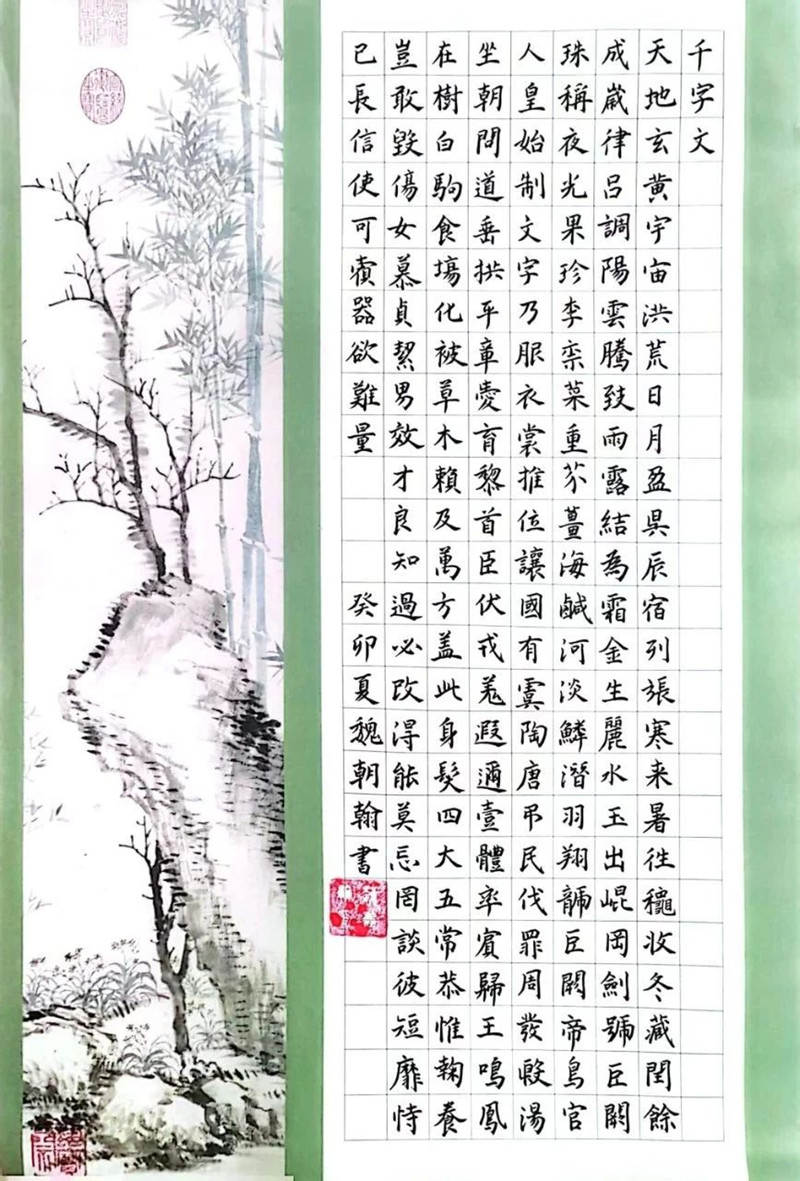 千字文
天地玄黃宇宙洪荒日月盈昃辰宿列張寒来暑往穐收冬藏閏餘
成歲律呂調陽雲騰致雨露結為霜金生麗水玉出崐岡劍號巨闕
珠稱夜光果珍李柰菜重芥薑海鹹河淡鱗潛羽翔巨闕帝鳥官
人皇始制文字乃服衣裳推位讓國有虞陶唐吊民伐罪周發殷湯
坐朝問道垂拱平章愛育黎首臣伏戎羌遐邇壹體率賓歸王鳴鳳
在樹白駒食場化被草木賴及萬方盖此身髮四大五常恭惟鞠養
豈敢毀傷女慕貞絜男效才良知過必改得能莫忘罔談彼短靡恃
己長信使可覆器欲難量
癸卯夏魏朝翰書